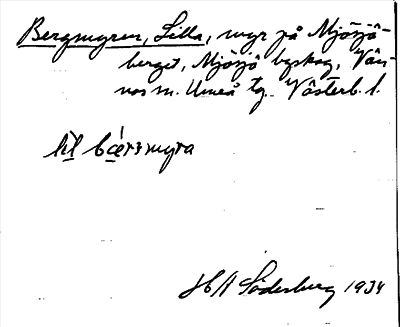 Bergmyren, Lilla, myr på Mjösjö-
berget, Mjösjö byskog, Vän-
näs sn. Umeå tg. Västerb. l.
bærsmyra
H Söderberg 1934